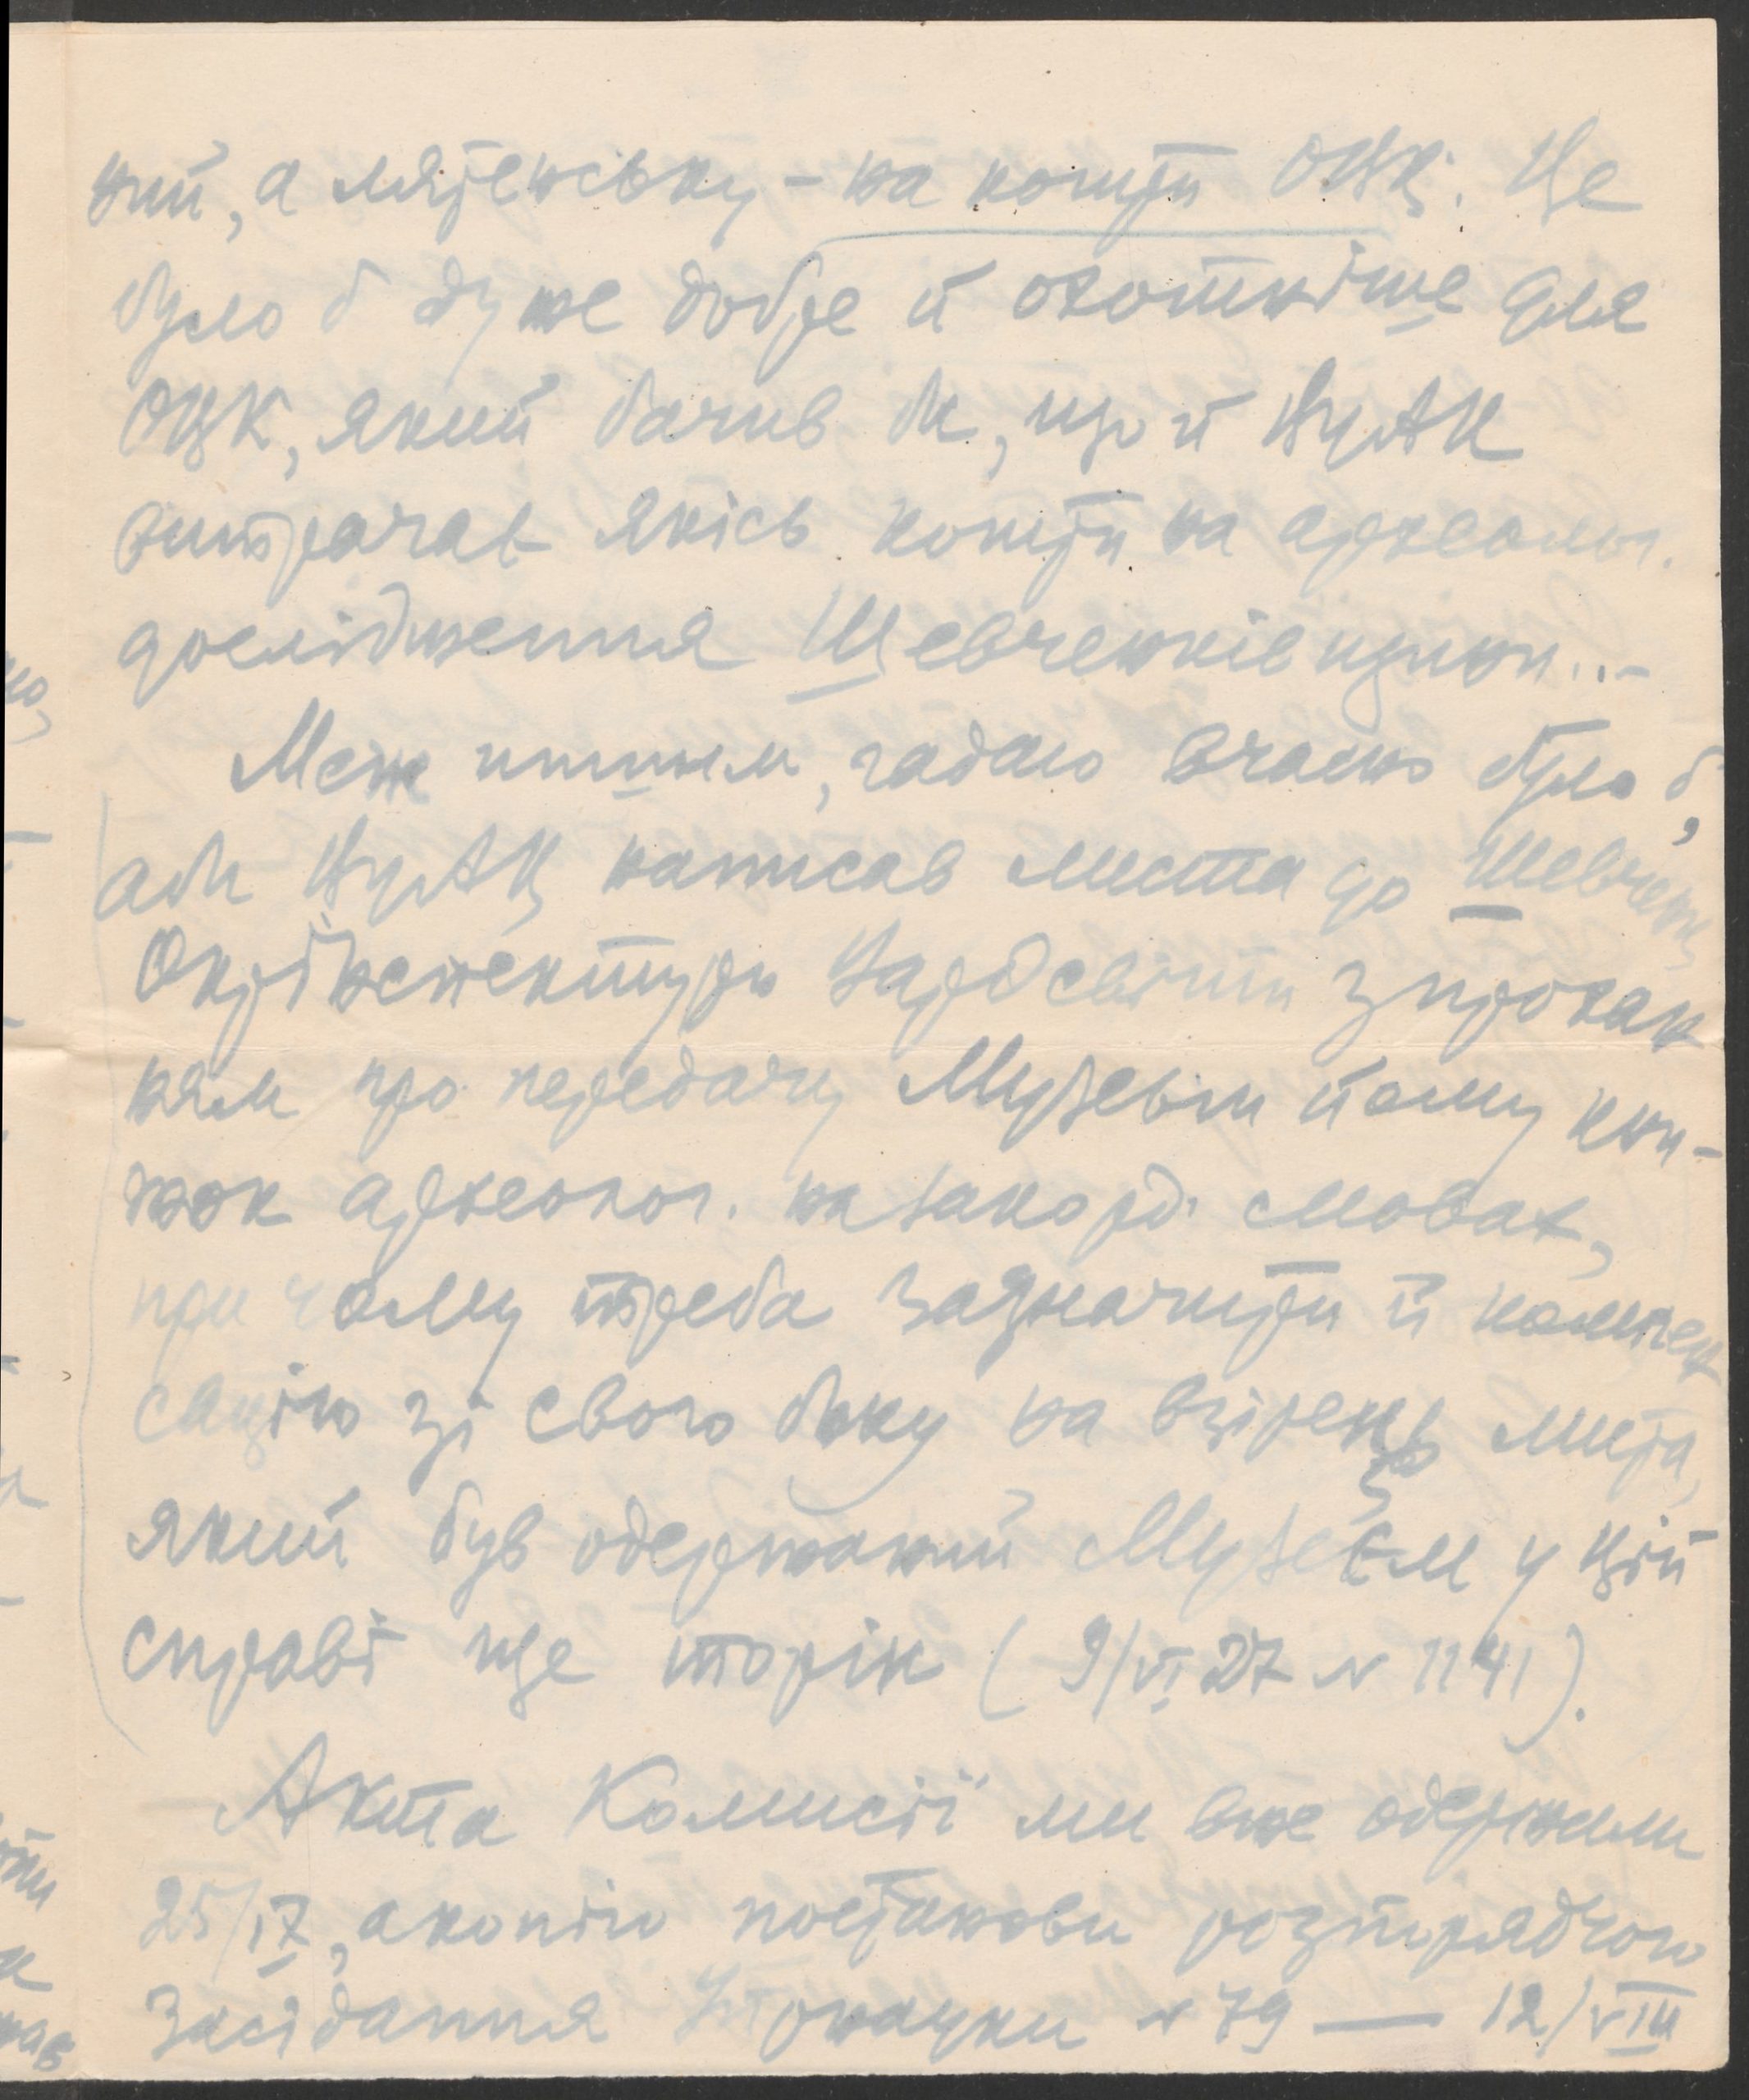 ний, а мятенську – на кошти ОЦК. Це
було б дуже добре й охотніше для
ОЦК, який бачив би, що й ВУАК
витрачав якісь кошти на археольог.
дослідження Шевченківщини...–
Меж иншим, гадаю вчасно було б,
аби ВУАК написав листа до Шевченк
Окрінспектури Нардсвіти з прохан
ням про передачу Музеєві йому кни-
жок археолог. на закорд. мовах,
при чому треба зазначити й компен
сацію зі свого боку на взірець листа,
який був одержаний Музеєм у цій
справі ще торік (9/VI 27 N 1141).
Акта Комисії ми вже одержали
25/IX, а копію постанови розпорядчого
засідання Упрнауки N 79 — 12/VIII